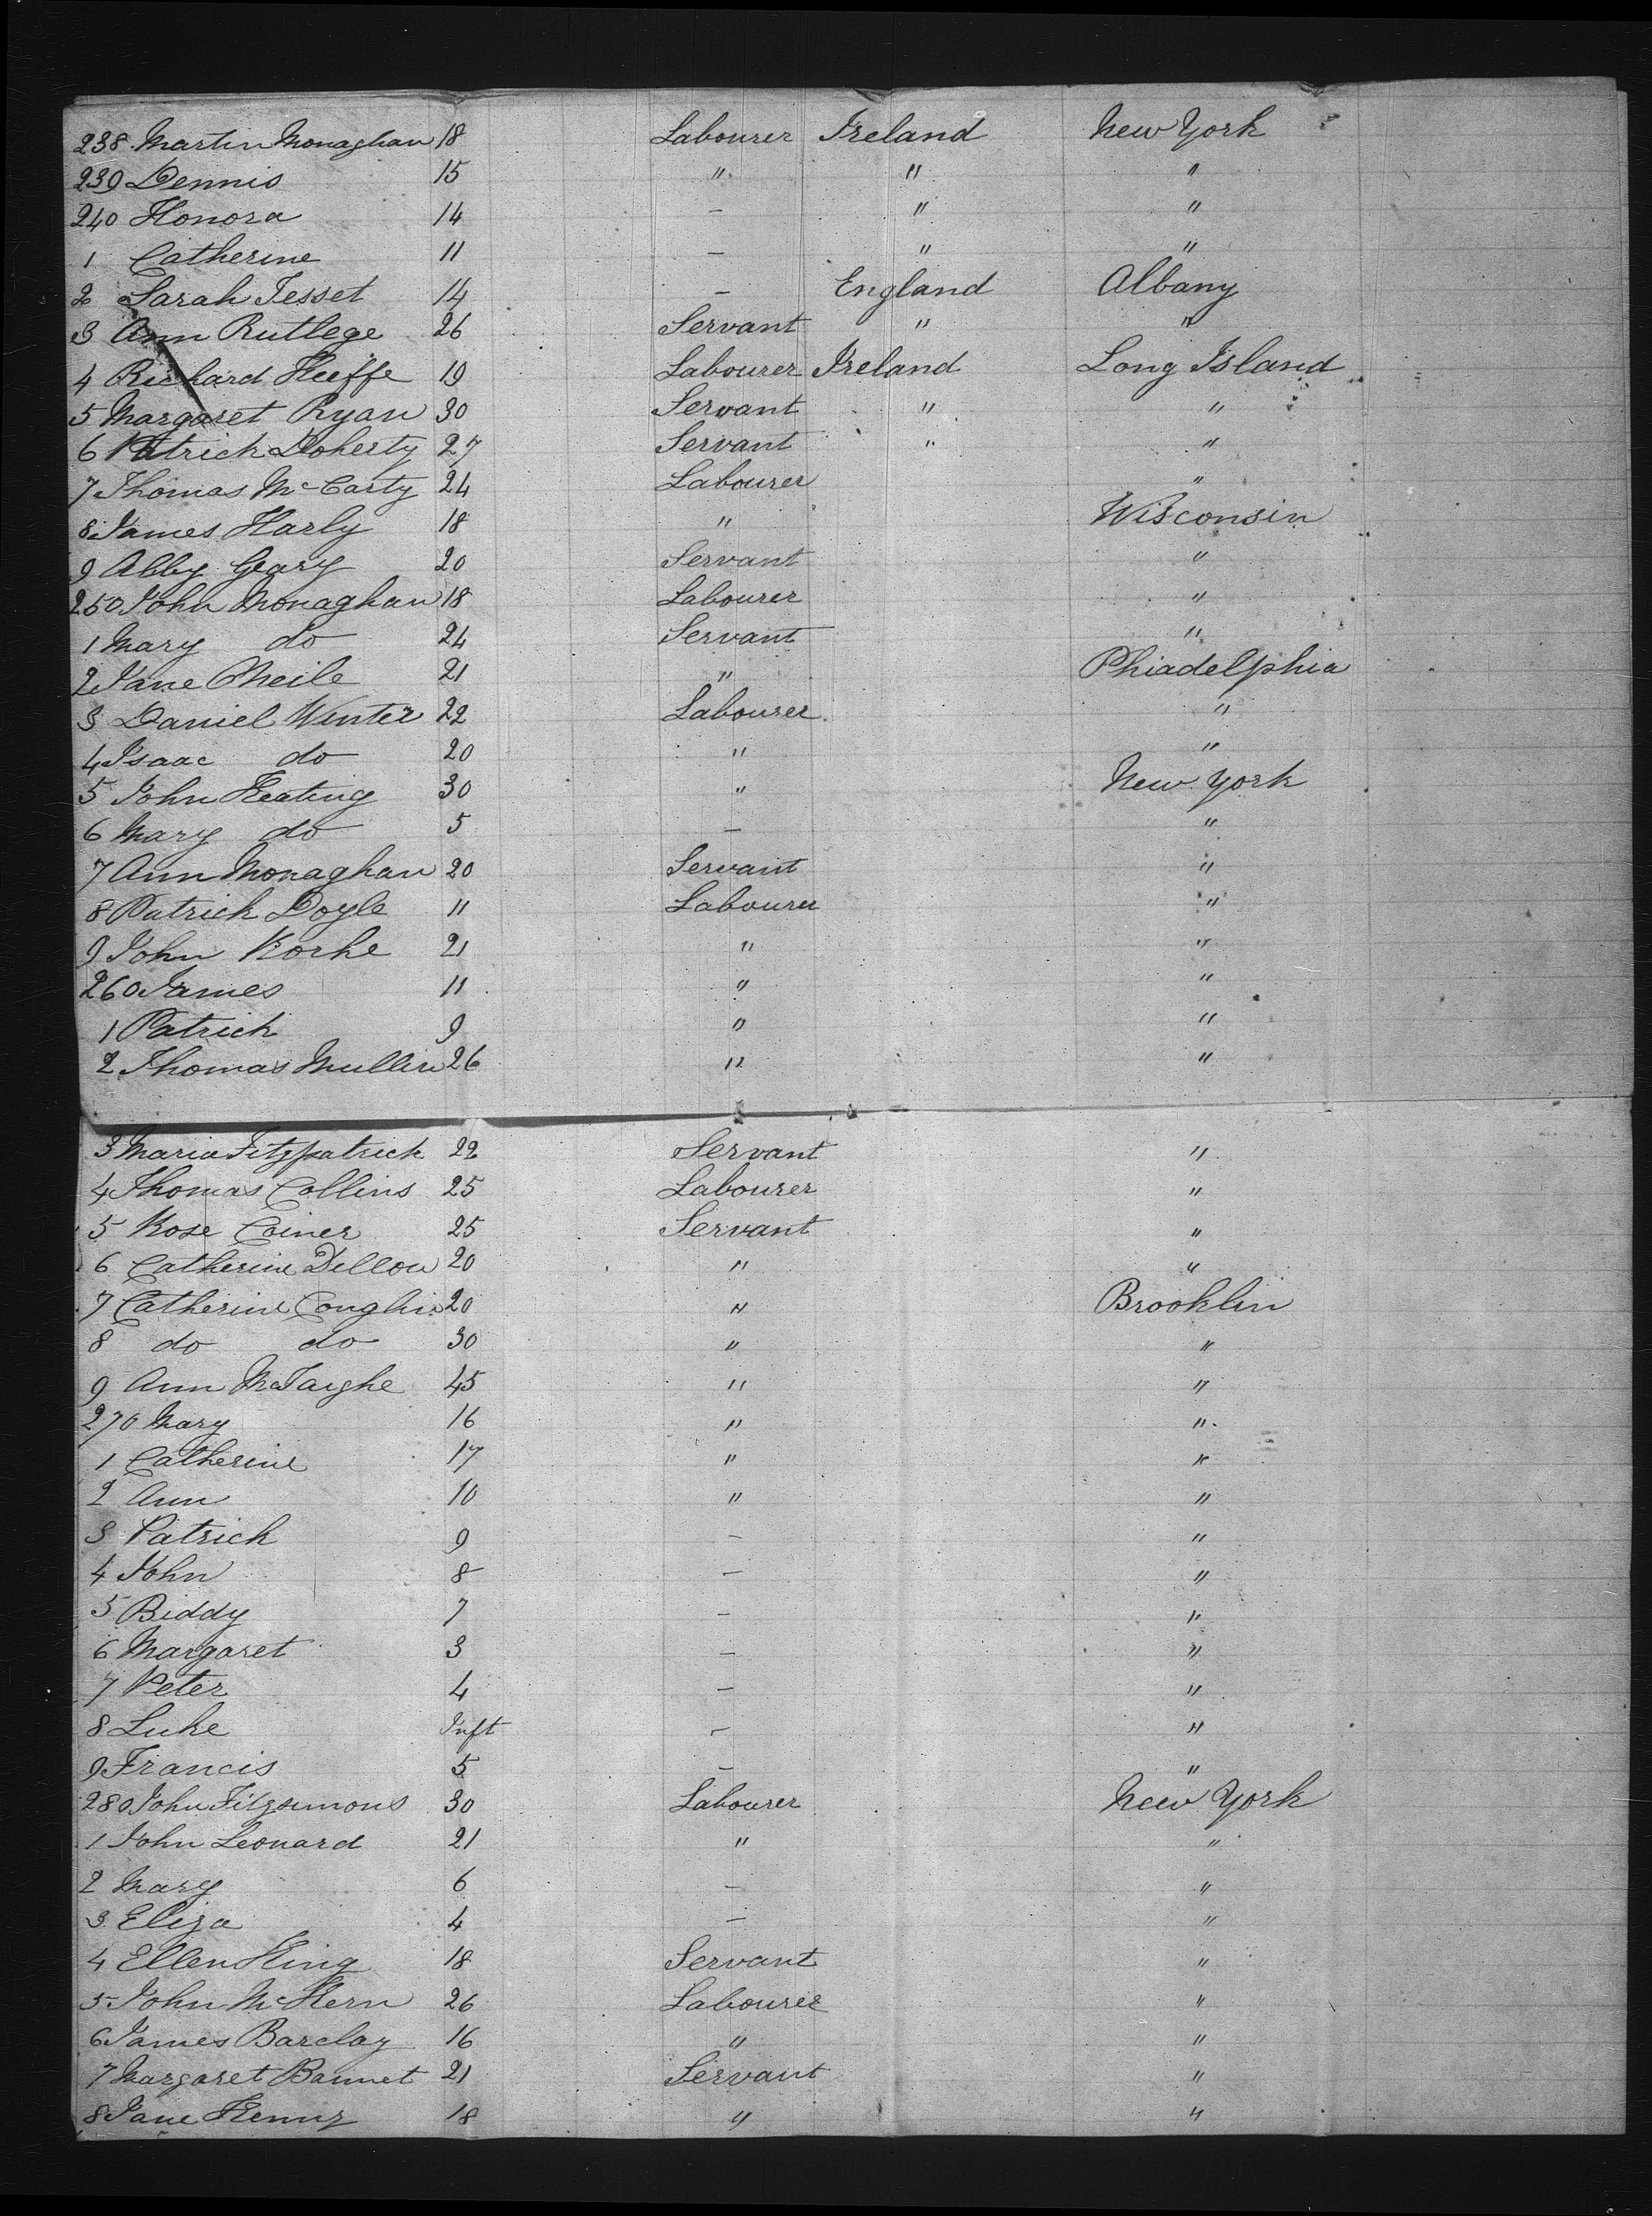 238 Martin Monaghan 18 Labourer Ireland New York
239 Dennis 15 " " "
240 Honora 14 - " "
1 Catherine 11 - " "
2 Sarah Tesset 14 - England Albany
3 Ann Rutlege 26 Servant " "
4 Richard Keeffe 19 Labourer Ireland Long Island
5 Margaret Ryan 30 Servant " "
6 Patrick Doherty 27 Servant " "
7 Thomas McCarty 24 Labourer "
8 James Harly 18 " Wisconsin
9 Abby Geary 20 Servant "
250 John Monaghan 18 Labourer "
1 Mary do 24 Servant "
2 Jane Oneile 21 " Phiadelphia
3 Daniel Winter 22 Labourer "
4 Isaac do 20 " "
5 John Keating 30 " New York
6 Mary do 5 - "
7 Ann Monaghan 20 Servant "
8 Patrick Doyle 11 Labourer "
9 John Rorke 21 " "
260 James 11 " "
1 Patrick 9 " "
2 Thomas Mullin 26 " "
3 Maria Fitzpatrick 22 Servant "
4 Thomas Collins 25 Labourer "
5 Rose Coiner 25 Servant "
6 Catherine Dillon 20 " "
7 Catherine Conghin 20 " Brooklin
8 do do 30 " "
9 Ann McTaighe 45 " "
270 Mary 16 " "
1 Catherine 17 " "
2 Ann 10 " "
3 Patrick 9 - "
4 John 8 - "
5 Biddy 7 - "
6 Margaret 3 - "
7 Peter 4 - "
8 Luke Inft - "
9 Francis 5 - "
280 John Fitzsimons 30 Labourer New York
1 John Leonard 21 " "
2 Mary 6 - "
3 Eliza 4 - "
4 Ellen King 18 Servant "
5 John McKern 26 Labourer "
6 James Barclay 16 " "
7 Margaret Bannet 21 Servant "
8 Jane Kenny 18 " "